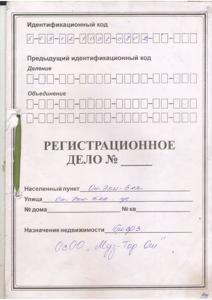 Идентификационный код
Предыдущий идентификационный код
Деление
Объединение
РЕГИСТРАЦИОННОЕ
ДЕЛО №
Населенный пункт
Улица
№ дома № кв
Назначения недвижимости
ОсОО „Муз-Тор Ош"